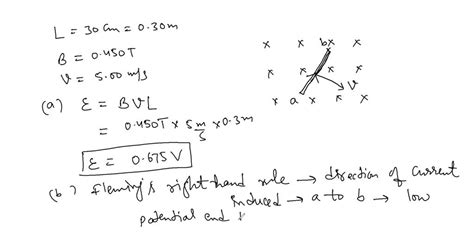 L = 30 cm = 0.30m
B = 0.450T
V = 5.00 m/s
(a) ε = BVL
= 0.450T × 5 m/s × 0.3m
ε = 0.675 V
(b) Fleming's right hand rule → direction of current
induced → a to b → low
potential end
x x bx x
x x x x
V
x a x x x